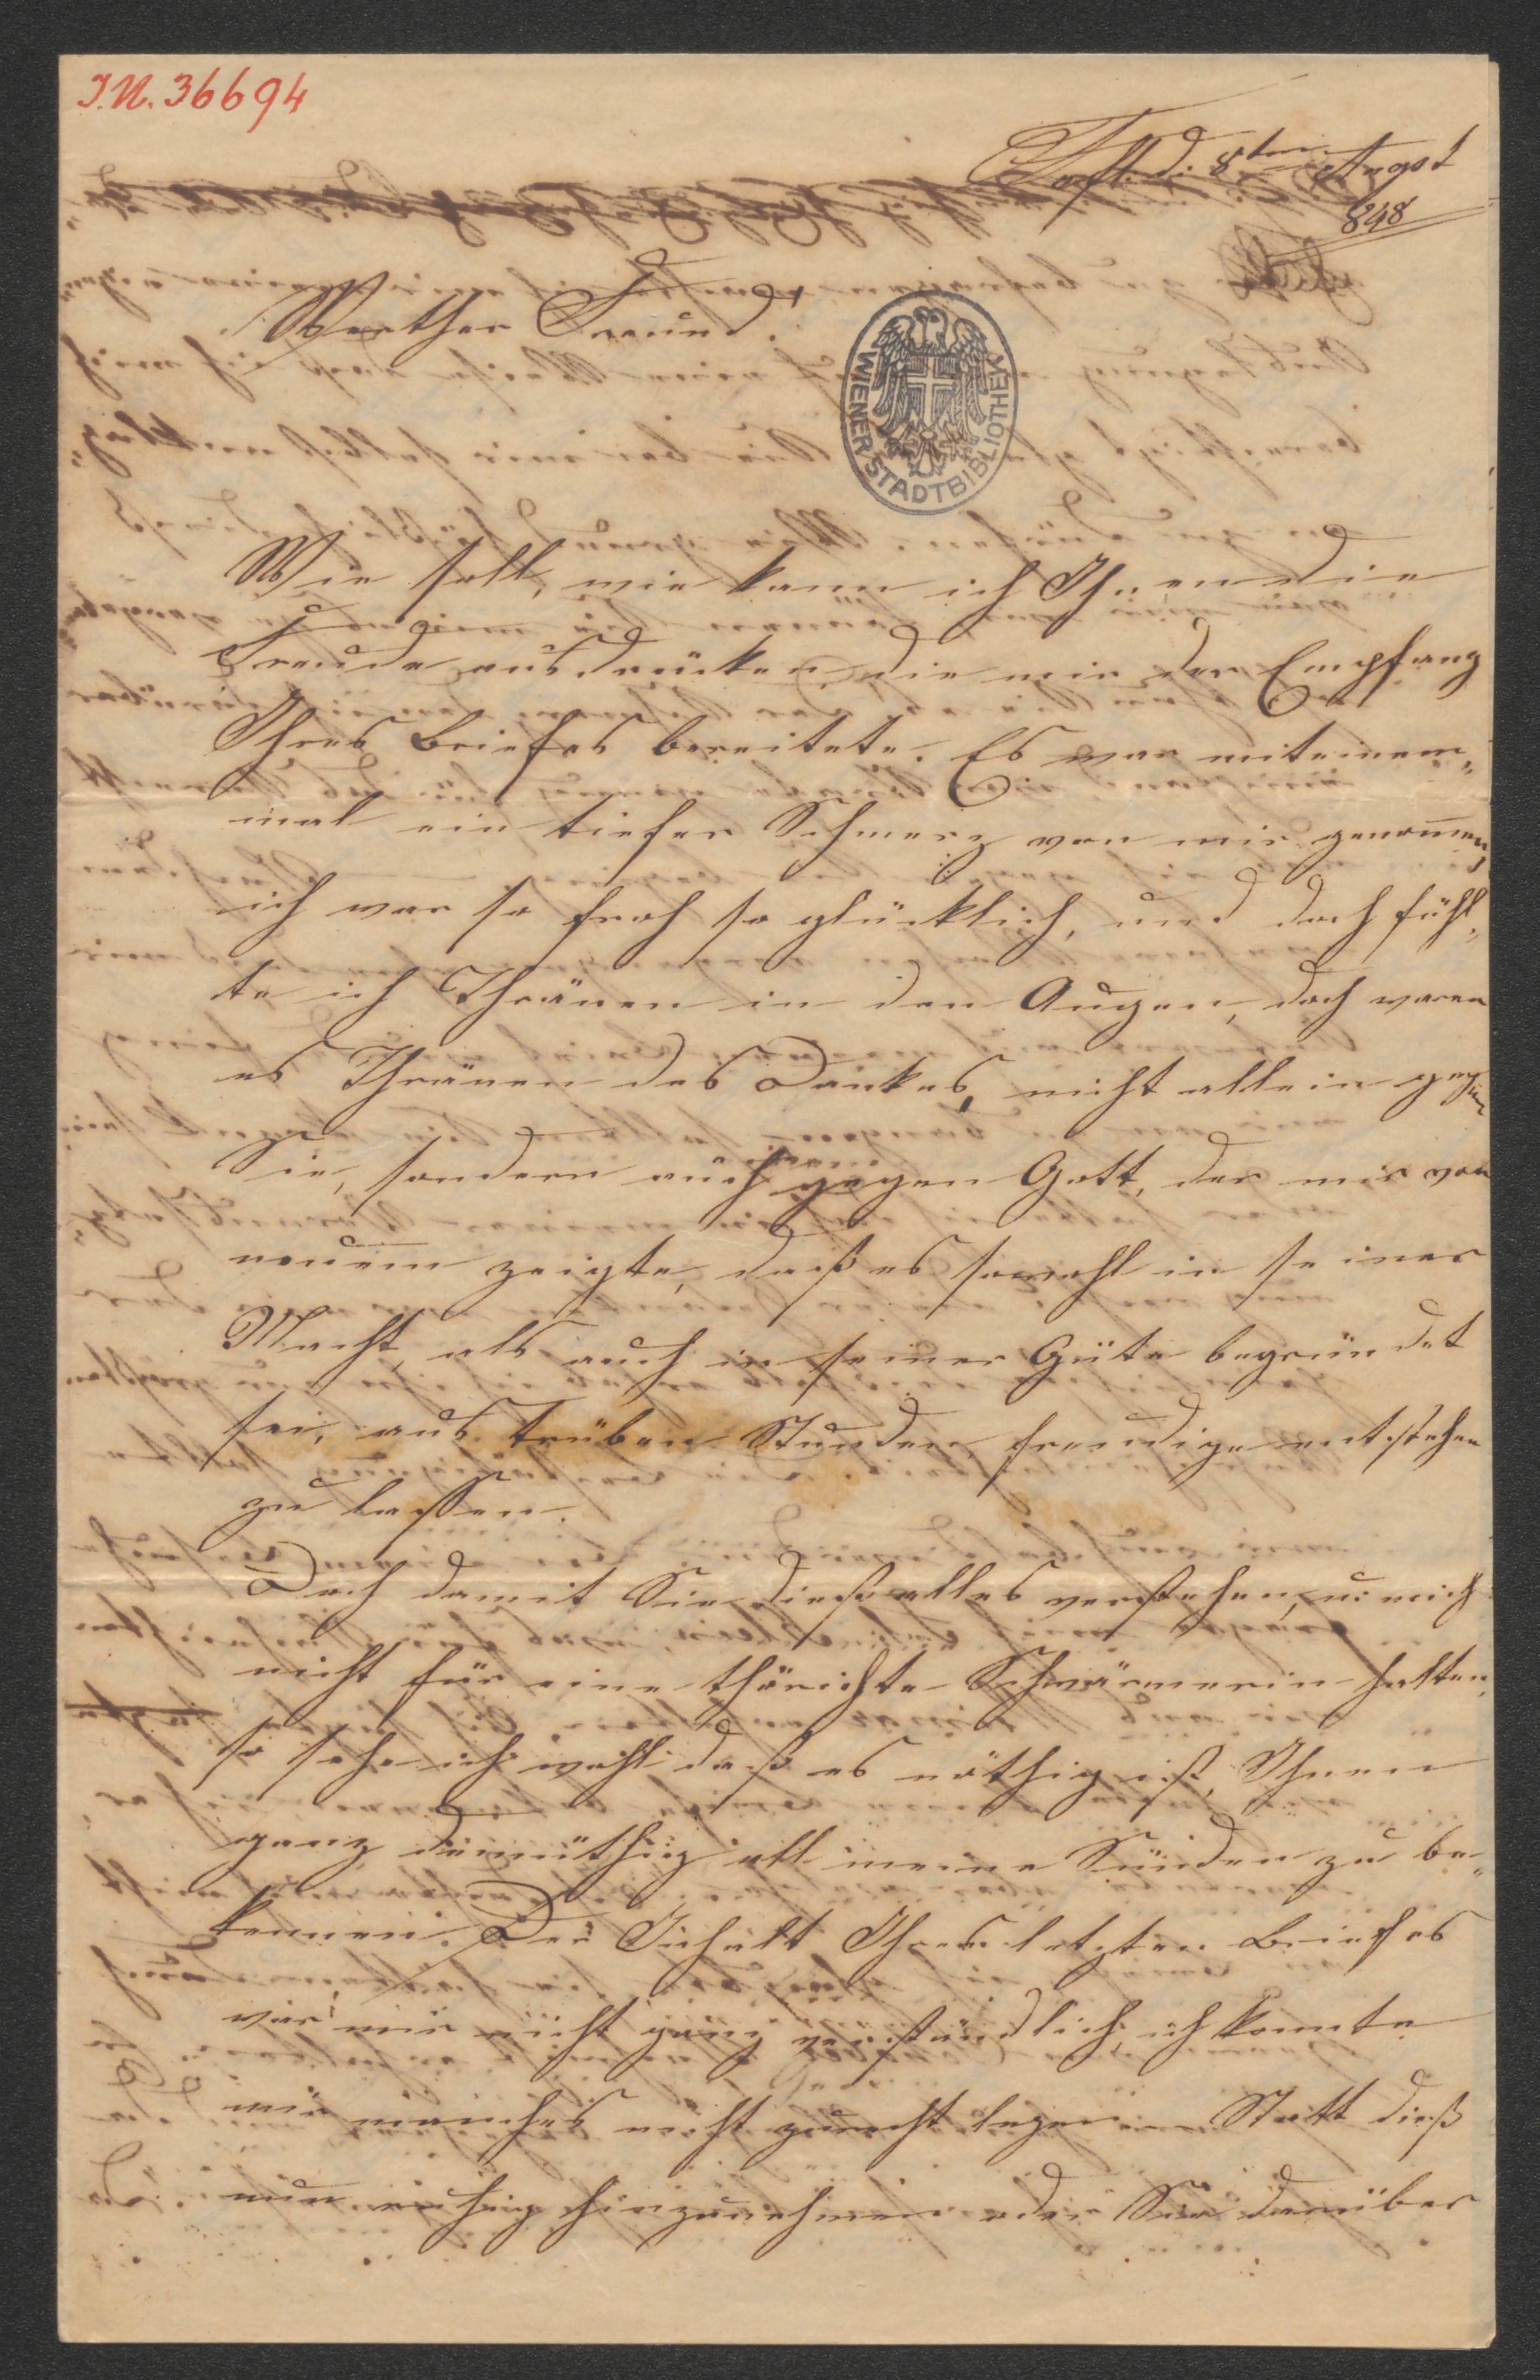 I.N. 36694
d. 8ten August
848
Werther Freund!
WIENER STADTBIBLIOTHEK
Wie soll, wie kann ich Ihnen die
Freude ausdrücken, die mir der Empfang
Ihres Briefes bereitete. Es war mit einem„
mal ein tiefer Schmerz von mir genom̄en,
ich war so froh so glücklich, und doch fühl„
te ich Thränen in den Augen, doch waren
es Thränen des Dankes, nicht allein gegen
Sie, sondern auch gegen Gott, der mir von
neuem zeigte, daß es sowohl in seiner
Macht, als auch in seiner Güte begründet
sei, aus trüben Stunden, freudige entstehen
zu lassen.
Doch damit Sie dieß alles verstehen, u: mich
nicht für eine thörichte Schwärmerin halten,
so sehe ich wohl daß es nöthig ist, Ihnen
ganz demüthig all meine Sünden zu be„
kennen. Der Inhalt Ihres letzten Briefes
war mir nicht ganz verständlich, ich konnte
mir manches nicht zurecht legen. Statt dieß
nun ruhig hinzunehmen oder Sie darüber